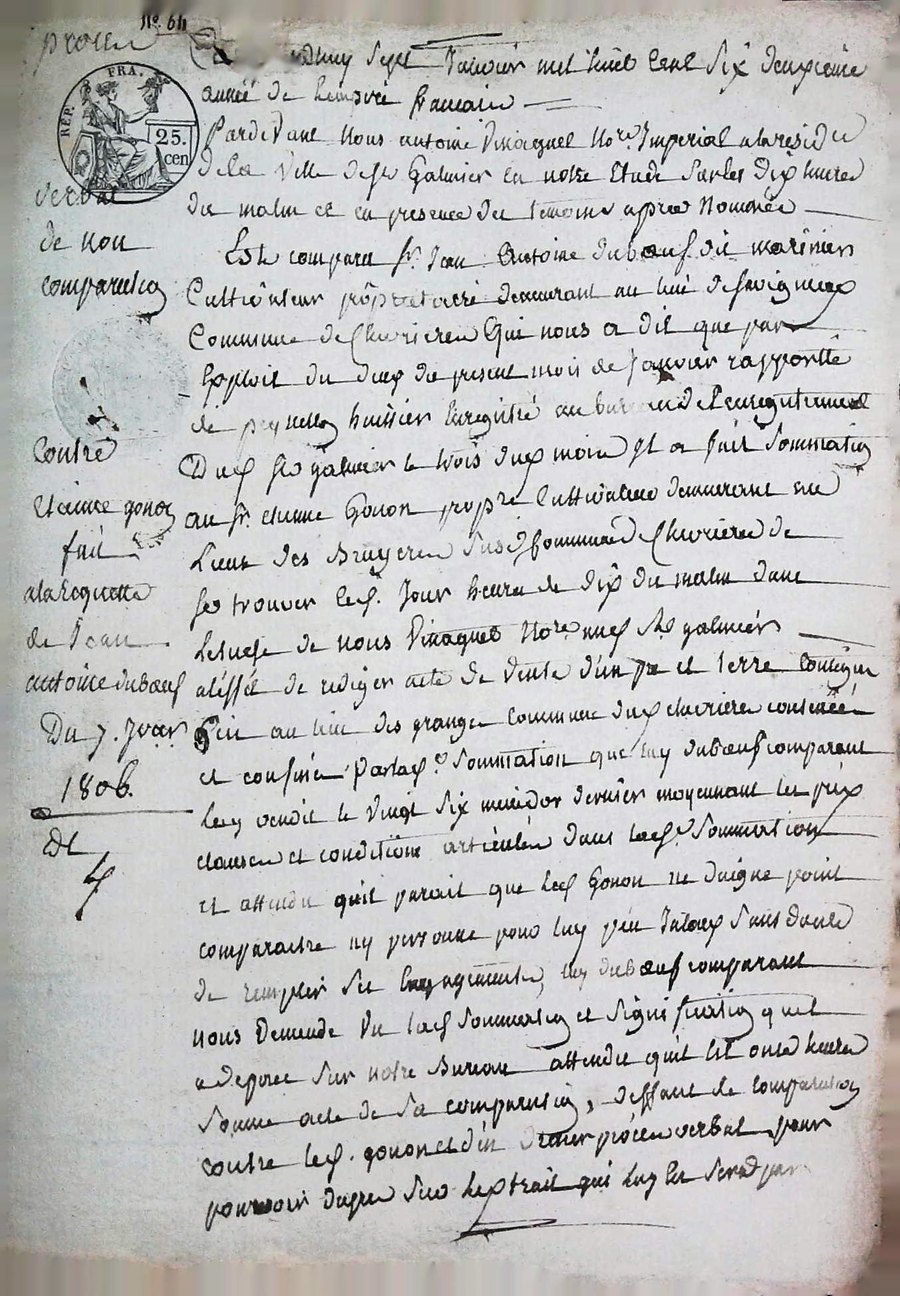 N°. 64
procès
REP. FRA.
25.
cen
verbal
de non
comparution
Contre
Etienne gonon
fait
a la Requette
de Jean
antoine duboeuf
Du 7. Jver
1806.
sept Janvier mil huit Cent Six deuxieme
année de Lempire francais
Pardevant Nous antoine Vinagnet Nore. Imperial a la residce
de la Ville de St Galmier En notre Etude Sur les Dix heures
du matin et en presence des temoins apres Nommés
Est comparu sr. Jean Antoine duboeuf dit marinier
Cultivateur propriétaire demeurant au lieu de
Commune de Chevrieres Qui nous a dit que par
Exploit du deux du present mois de Janvier rapporté
de huissier Enregistré au bureau de L'enregistrement
Dud. St galmier le trois dud. mois Il a fait Sommation
au sr. etienne Gonon propre. Cultivateur demeurant au
Lieu des Bruyeres susd. Commune de Chevrieres de
se trouver led. Jour heure de dix du matin dans
Letude de nous Vinagnet Nore. aud. St galmier
a l'effet de rediger acte de Vente d'un pré et terre Contigus
Situé au lieu des granges Commune dud. chevrieres
et confiné Par lad. Sommation que luy duboeuf comparant
luy vendit le Vingt Six messidor dernier moyennant les prix
clauses et conditions articulés dans lad. Sommation
et attendu qu'il parait que led. Gonon ne daigne point
comparaitre ny personne pour luy peu Jaloux Sans doute
de remplir ses Engagements, luy duboeuf comparant
nous Demande Vu lad. Sommation et Signification qu'il
a deposé sur notre Bureau attendu qu'il Est onze heures
Sonné acte de sa comparution, deffaut de comparution
contre led. gonon et d'en dresser procès verbal pour
pourvoir dapres sur Lextrait qui luy En Sera par